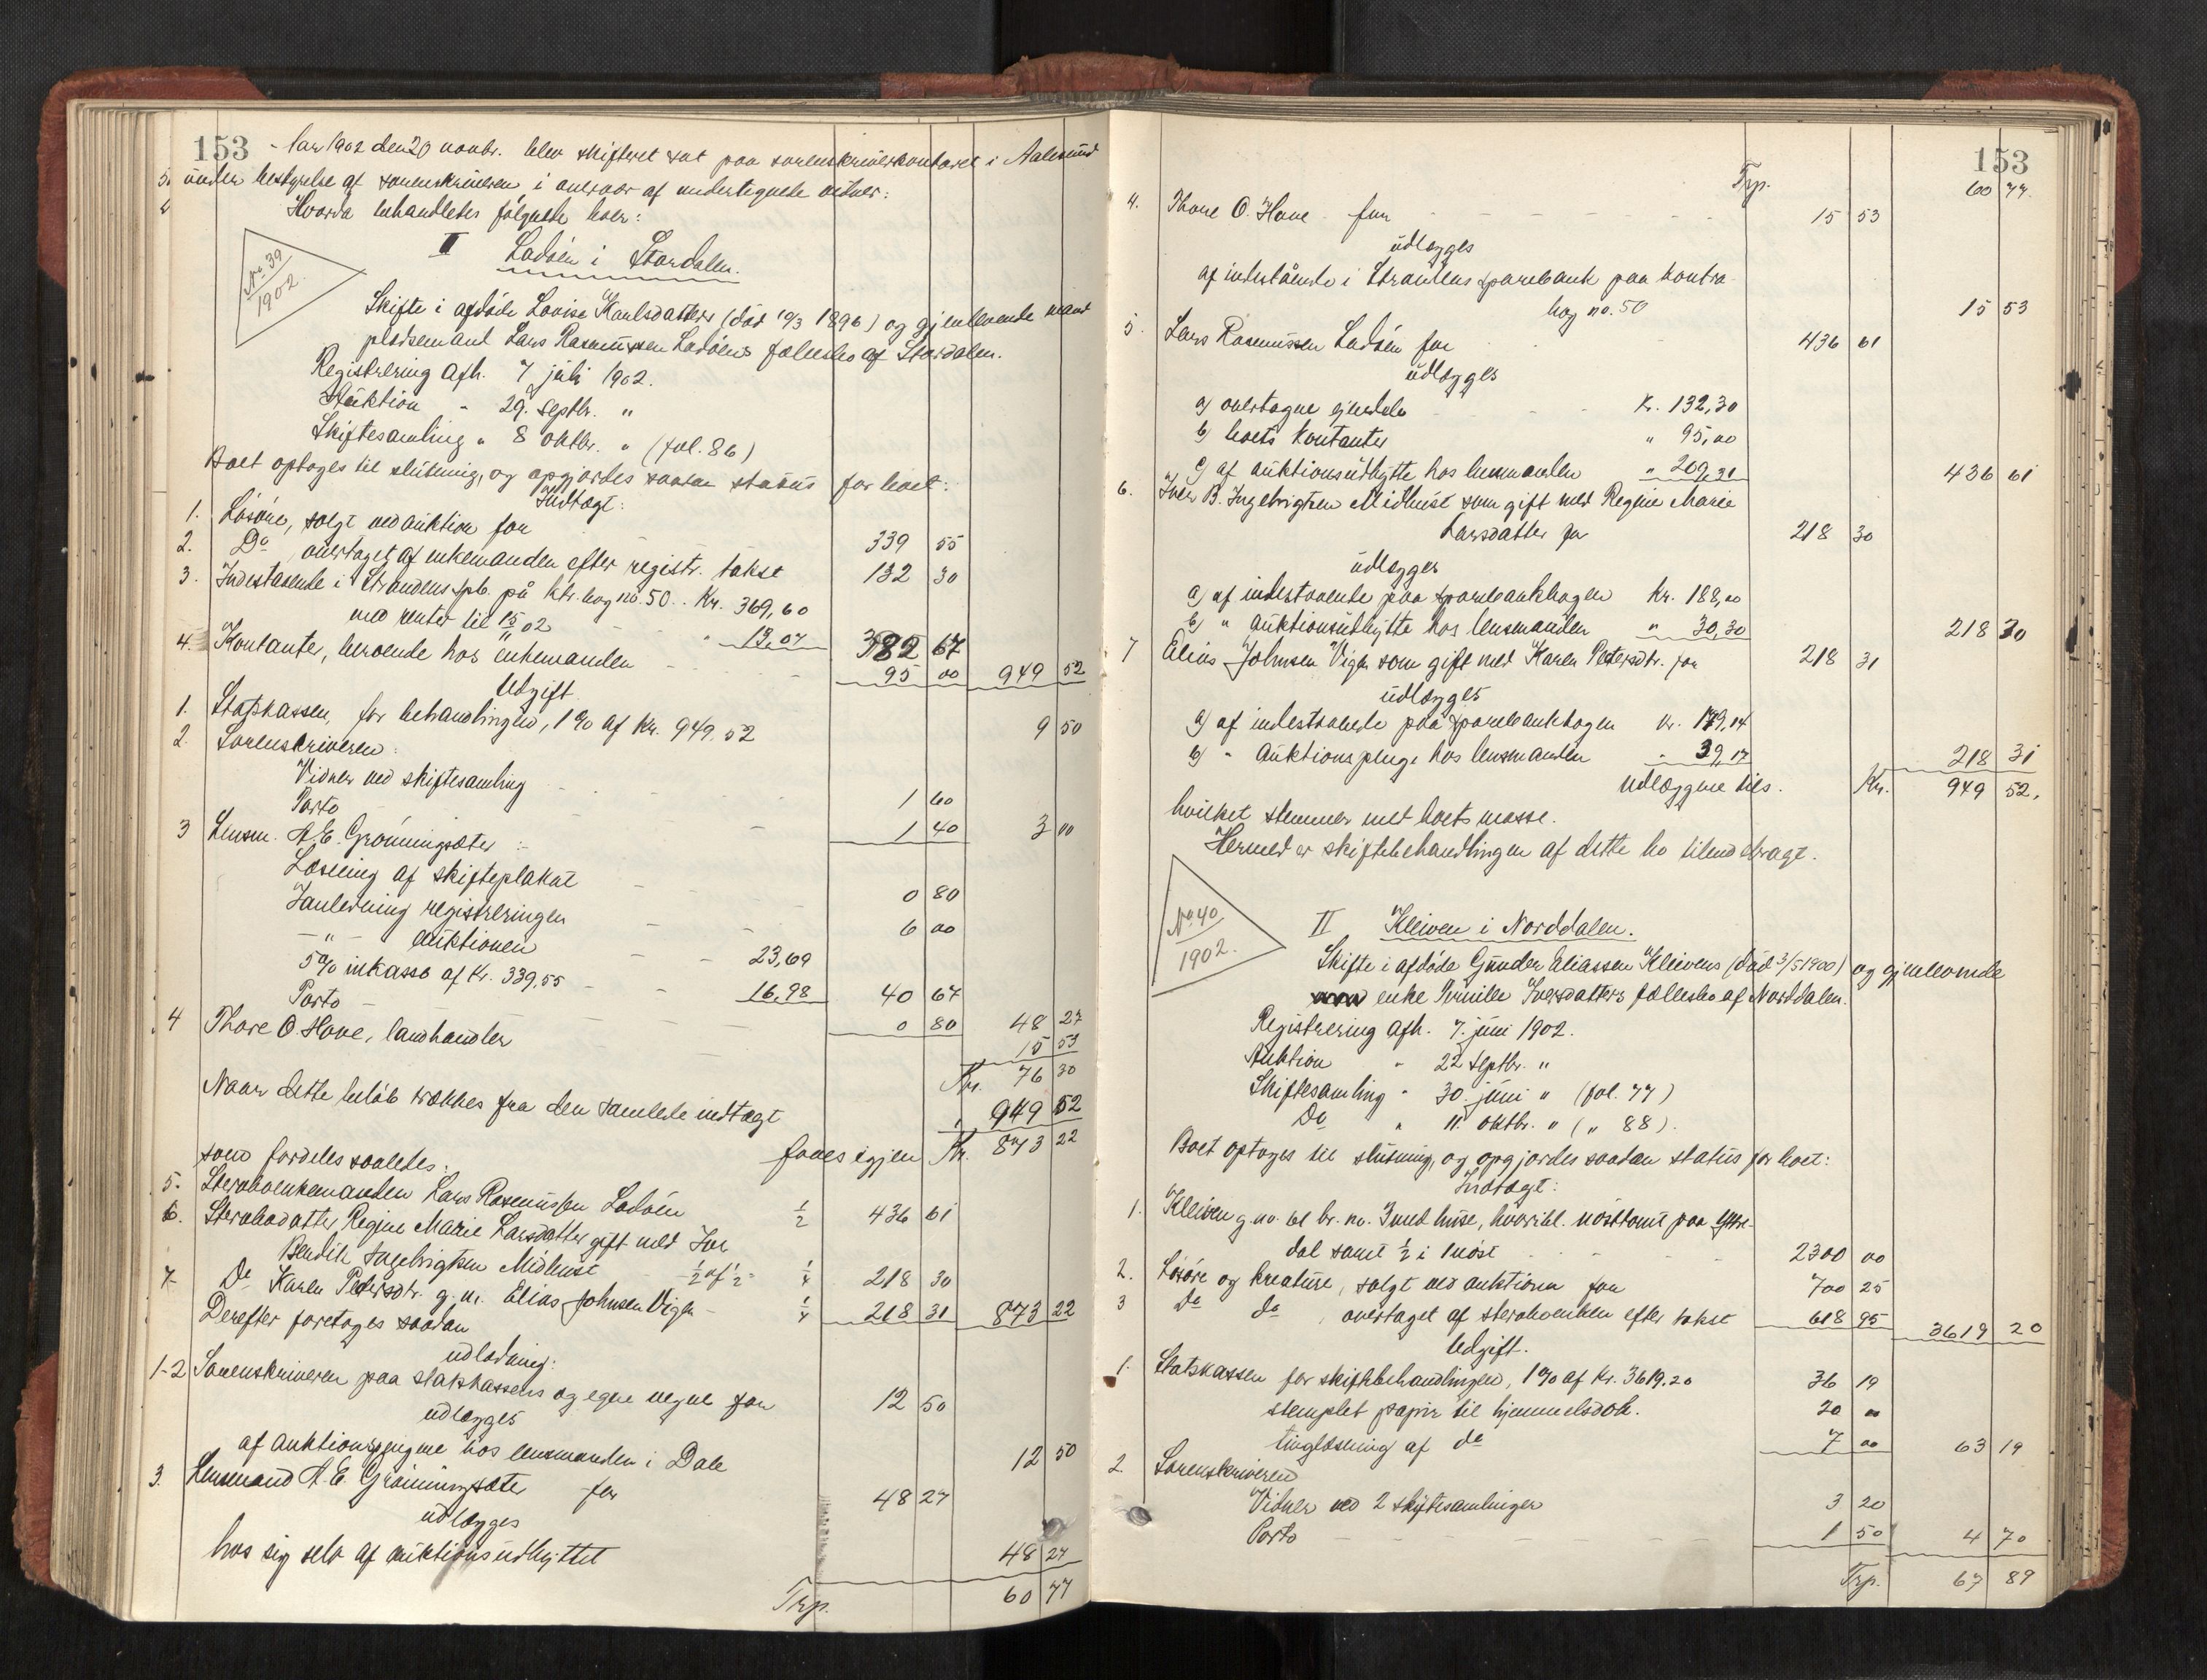 153
Aar 1902 den 20 novbr. blev skifteret sat paa sorenskriverkontoret i Aalesund
under bestyrelse af sorenskriveren i overvær af undertegnede vidner:
Hvorda behandledes følgende boer:
I Ladøen i Stordalen.
No 39
1902.
Skifte i afdøde Lovise Karlsdatters (død 10/3 1896) og gjenlevende mand
pladsemand Lars Rasmussen Ladøens fællesbo af Stordalen.
Registrering afh. 7 juli 1902.
Auktion " 29. septbr. "
Skiftesamling " 8 oktbr. " (fol. 86)
Boet optoges til slutning, og opgjordes saadan status for boet:
Indtægt:
1. Løsøre, solgt ved auktion for 339 55
2. Do, overtaget af enkemanden efter registr. takst 132 30
3. Indestaaende i Strandens spb. på ktr. bog no. 50.. Kr. 369,60
med renter til 15/11 02 " 13,07 382 67
4. Kontanter, beroende hos enkemanden 95 00 949 52
Udgift
1. Statskassen, for behandlingen, 1 % af Kr. 949,52 9 50
2. Sorenskriveren:
Vidner ved skiftesamling 1 60
Porto 1 40 3 00
3 Lensm. A. E. Grønningsæter :
Læsning af skifteplakat 0 80
Ianledning registreringen 6 00
" auktionen 23,69
5 % inkasso af Kr. 339,55 16,98 40 67
Porto 0 80 48 27
4 Thore O. Hove, landhandler 15 53
Kr. 76 30
Naar dette beløb trækkes fra den samlede indtægt " 949 52
faaes igjen Kr. 873 22
som fordeles saaledes:
5. Stervboenkemanden Lars Rasmussen Ladøen 1/2 436 61
6. Stervbodatter Regine Marie Larsdatter gift med Iver
Bendik Ingebrigtsen Midhust 1/2 af 1/2 = 1/4 218 30
7. Do Karen Petersdtr. g. m. Elias Johnsen Vigen 1/4 218 31 873 22
Derefter foretoges saadan
udlodning:
1-2 Sorenskriveren paa statskassens og egne vegne for 12 50
udlægges
af auktionspengene hos lensmanden i Dale 12 50
3. Lensmand A. E. Grønningsæter for 48 27
udlægges
hos sig selv af auktionsudbyttet 48 27
Trp. 60 77
153
Trp. 60 77.
4. Thore O. Hove for 15 53
udlægges
af indestående i Strandens sparebank paa kontra-
bog no. 50 15 53
5. Lars Rasmussen Ladøen for 436 61
udlægges
a) overtagne ejendele Kr. 132,30
b) boets kontanter " 95,00
c) af auktionsudbytte hos lensmanden " 209,31 436 61
6. Iver B. Ingebrigtsen Midhust som gift med Regine Marie
Larsdatter for 218 30
udlægges
a) af indestaaende paa sparebankbogen Kr. 188,00
b) " auktionsudbytte hos lensmanden " 30,30 218 30
7 Elias Johnsen Vigen som gift med Karen Petersdtr. for 218 31
udlægges
a) af indestaaende paa sparebankbogen Kr. 179,14
b) " auktionspenge hos lensmanden " 39,17 218 31
Udlæggene tils. Kr. 949 52.
hvilket stemmer med boets masse.
Hermed er skiftebehandlingen af dette bo tilendebragt.
No 40
1902.
II Kleiven i Norddalen.
Skifte i afdøde Gunder Eliassen Kleivens (død 3/5 1900) og gjenlevende
enke Pernille Iversdatters fællesbo af Norddalen.
Registrering afh. 7. juni 1902.
Auktion " 22 septbr. "
Skiftesamling " 30. juni " (fol. 77)
Do " 11. oktbr. " ( " 88).
Boet optoges til slutning, og opgjordes saadan status for boet:
Indtægt:
1. Kleiven g. no. 61 br. no. 3 med huse, hvoribl. nøsttomt paa Ytre-
dal samt 1/2 i 1 nøst 2300 00
2. Løsøre og kreature, solgt ved auktionen for 700 25
3 do do, overtaget af stervboenken efter takst 618 95 3619 20
Udgift.
1. Statskassen for skiftebehandlingen, 1 % af Kr. 3619.20 36 19
stemplet papir til hjemmelsdok. 20 00
tinglæsning af do 7 00 63 19
2. Sorenskriveren
Vidner ved 2 skiftesamlinger 3 20
Porto 1 50 4 70
Trp. 67 89